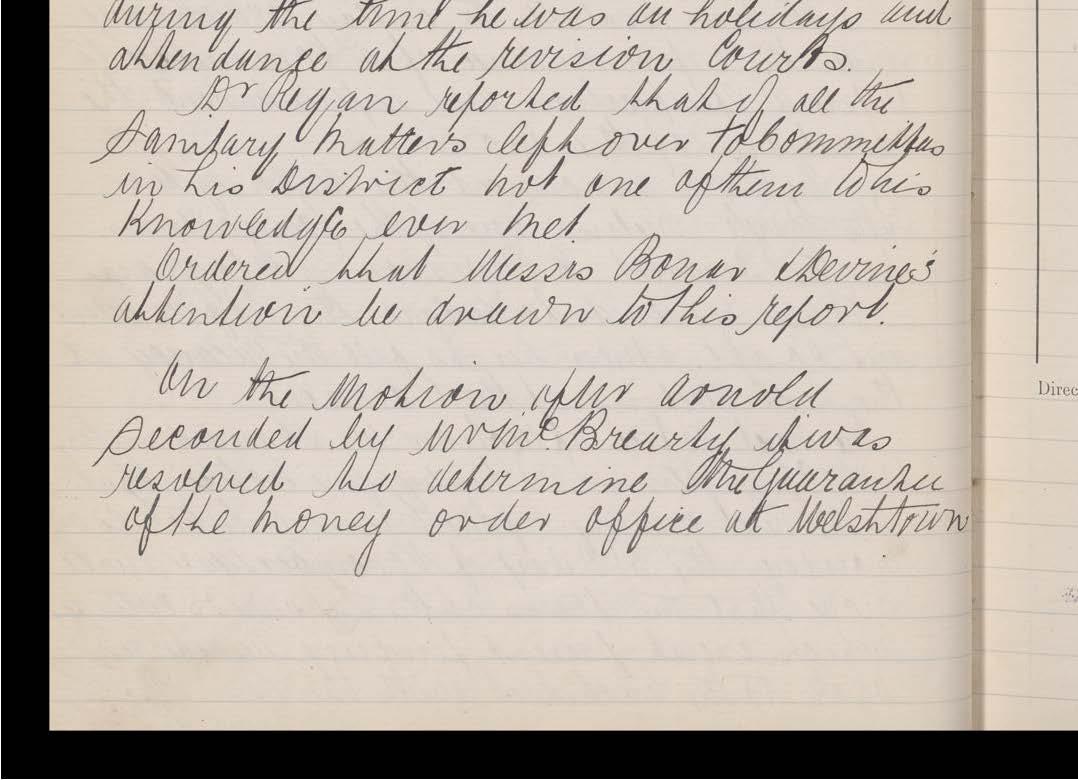 during the time he was on holidays and
attendance at the revision Courts.
Dr Regan reported that of all the
Sanitary Matters left over to Committees
in his District not one of them to his
Knowledge ever met.
Ordered that Messrs Bonar & Devine's
attention be drawn to this report.
On the Motion of Mr Arnold
Seconded by Mr McBrearty it was
resolved to determine the Guarantee
of the Money order office at Welshtown
Direc